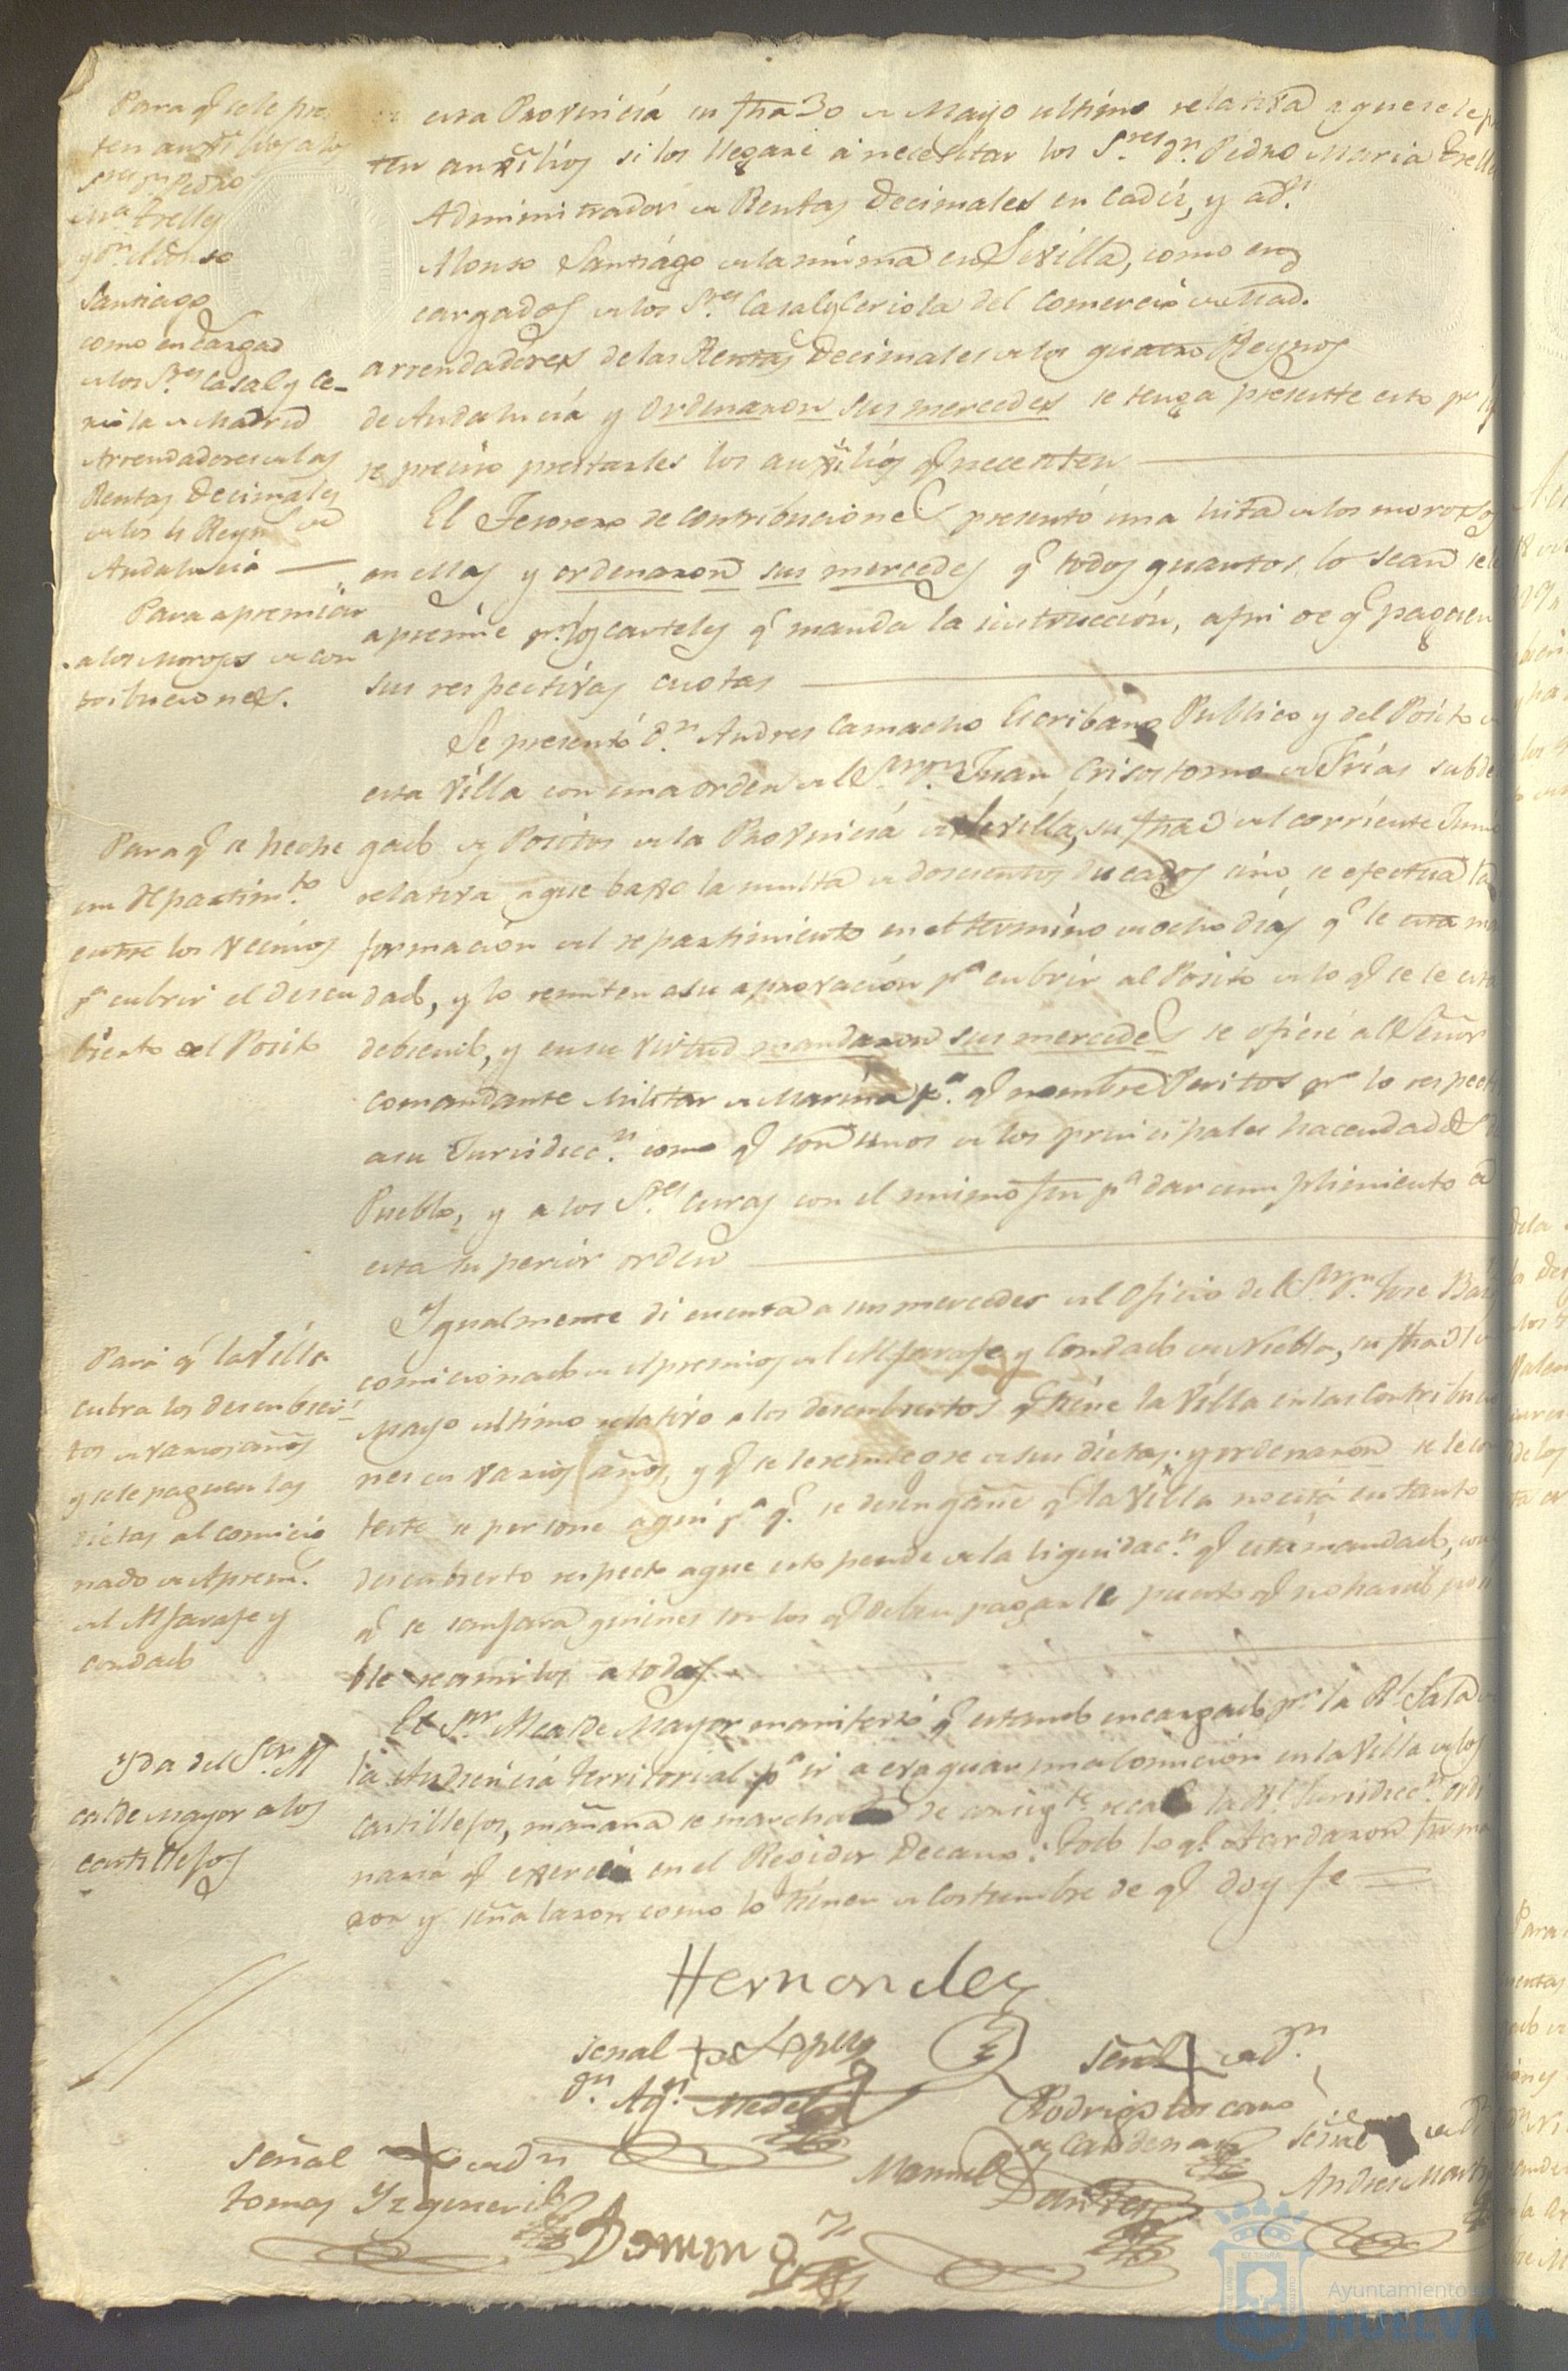 Para q.e se le pres
ten auxilios a los
S.res d.n Pedro
M.a Trelles
y d.n Alonso
Santiago
como encargad
de los S.res Casal y Ce-
riola de Madrid
Arrendadores de las
Rentas Decimales
de los 4 Reyn.s de
Andalucia
esta Provincia su fha 30 de Mayo ultimo relativa a que se le p
ten auxilios si los llegare a necesitar los S.res d.n Pedro Maria Trelles
Administrador de Rentas Decimales en Cadiz, y a d.n
Alonso Santiago de la misma en Sevilla, como en
cargados de los S.res Casal y Ceriola del Comercio de Mad.
arrendadores de las Rentas Decimales de los quatro Reynos
de Andalucia y ordenaron sus mercedes se tenga presente esto p.r si
es preciso prestarles los auxilios q.e necesiten
Para apremiar
a los Morosos de con
tribuciones.
El Tesorero de Contribuciones presentó una lista de los morosos
en ellas y ordenaron sus mercedes q.e todos quantos lo sean se les
apremie p.r los carteles q.e manda la instruccion, a fin de q.e paguen
sus respectivas cuotas
Para q.e se heche
un Repartim.to
entre los vecinos
p.a cubrir el descu
bierto del Posito
Se presentó d.n Andres Camacho Escribano Publico y del Posito de
esta Villa con una orden del S.or d.n Juan Crisostomo de Frias subde
gado de Positos de la Provincia de Sevilla, su fha 3 del corriente Junio
relativa a que baxo la multa de doscientos ducados sino se efectua la
formacion del repartimiento en el termino de ocho dias q.e le esta man
dado, y lo remiten a su aprovacion p.a cubrir al Posito de lo q.e se le esta
debiendo, y en su virtud mandaron sus mercedes se oficie al Señor
Comandante Militar de Marina p.a q.e nombre Peritos p.r lo respect
a su Jurisdicc.n como q.e son unos de los principales hacendados
Pueblo, y a los S.res Curas con el mismo fin p.a dar cumplimiento a
esta superior orden
Para q.e la Villa
cubra los descubier
tos de varios años
y se le paguen las
dietas al comicio
nado de Aprem.
del Alxarafe y
condado
Igualmente di cuenta a sus mercedes del oficio del S.or d.n Jose
comicionado de Apremios del Alxarafe y Condado de Niebla, su fha
Mayo ultimo relativo a los descubiertos q.e tiene la Villa en las Contribucio
nes en varios años, y q.e se le reintegre de sus dietas; y ordenaron se le con
teste se persone aqui p.a q.e se desengañe q.e la Villa no está en tanto
descubierto respecto a que esto pende de la liquidac.n q.e está mandado, con
q.e se quienes son los q.e deben pagarle puesto q.e no ha sido posi
ble reunirlos a todos
Yda del S.or Al
calde Mayor a los
castillejos
El S.or Alcalde Mayor manifestó q.e estando encargado p.r la R.l Sala de
la Audiencia Territorial p.a ir a evaquar una Comicion en la Villa de los
Castillejos, mañana se marcha de consig.te recae la R.l Jurisdicc.n ordi
naria q.e exercia en el Regidor Decano: Todo lo q.e Acordaron firma
ron y señalaron como lo tienen de Costumbre de q.e doy fe
Hernandez
señal + de
d.n Ag.n Medel
Lopez
señal + de d.n
Rodrigo toscano
de Cardenas
señal de d.n
Andres Mart
señal + de d.n
tomas Yzquierdo
Manuel
Dantes
Domin.z
Ayuntamiento de
HUELVA